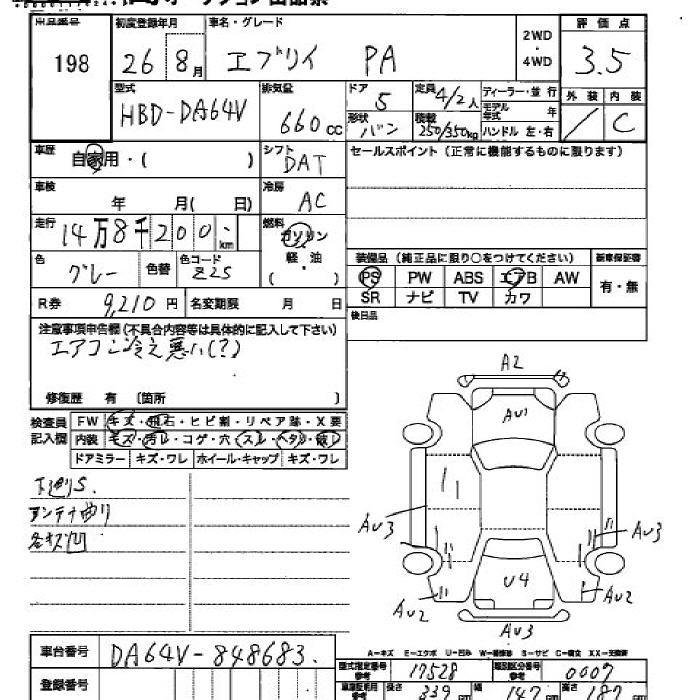 出品番号 初度登録年月 車名・グレード 2WD・4WD 評価点
198 26 8月 エブリイ PA 3.5
型式 排気量 ドア 定員 ディーラー・並行 外装 内装
HBD-DA64V 660cc 5 4/2人 モデル年式 年
形状 積載 ハンドル 左・右 / C
バン 250/350kg
車歴 自家用・( ) シフト DAT セールスポイント(正常に機能するものに限ります)
車検 年 月( 日) 冷房 AC
走行 14万8千200km 燃料 ガソリン
軽・油
( )
色 グレー 色替 色コード Z25
装備品(純正品に限り○をつけてください) 新車保証書
PS PW ABS エアB AW 有・無
SR ナビ TV カワ
R券 9,210円 名変期限 月 日 後日品
注意事項申告欄(不具合内容等は具体的に記入して下さい)
エアコン冷え悪い(?)
修復歴 有 〔箇所 〕
検査員記入欄 FW キズ・飛石・ヒビ割・リペア跡・X要
内装 キズ・汚レ・コゲ・穴・スレ・ヘタリ・破レ
ドアミラー キズ・ワレ ホイール・キャップ キズ・ワレ
下廻りS.
アンテナ曲り
各キズ凹
A2
AU1
AU3
AU3
U4
AU2
AU2
AU3
A-キズ E-エクボ U-凹み W-補修跡 S-サビ C-腐食 XX-交換済
車台番号 DA64V-848683.
型式指定番号 17528 類別区分番号 0007
登録番号 長さ 339cm 幅 147cm 高さ 187cm